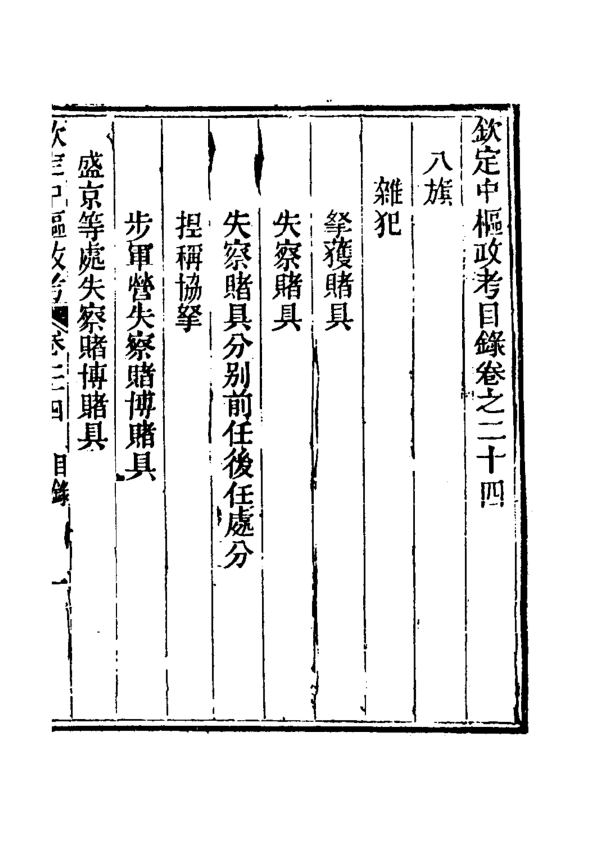 欽定中樞政考目錄卷之二十四
八旗
雜犯
拏獲賭具
失察賭具
失察賭具分别前任後任處分
捏稱協拏
步軍營失察賭博賭具
盛京等處失察賭博賭具
欽定中樞政考 卷二十四 目錄 一